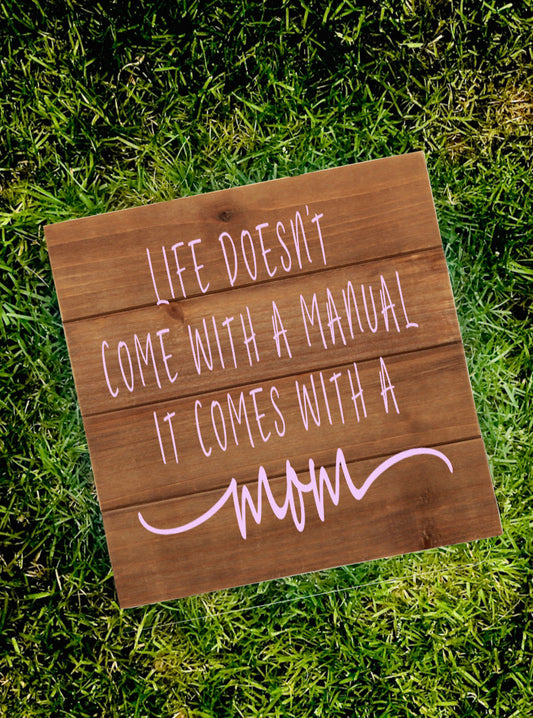 LIFE DOESN'T
COME WITH A MANUAL
IT COMES WITH A
mom